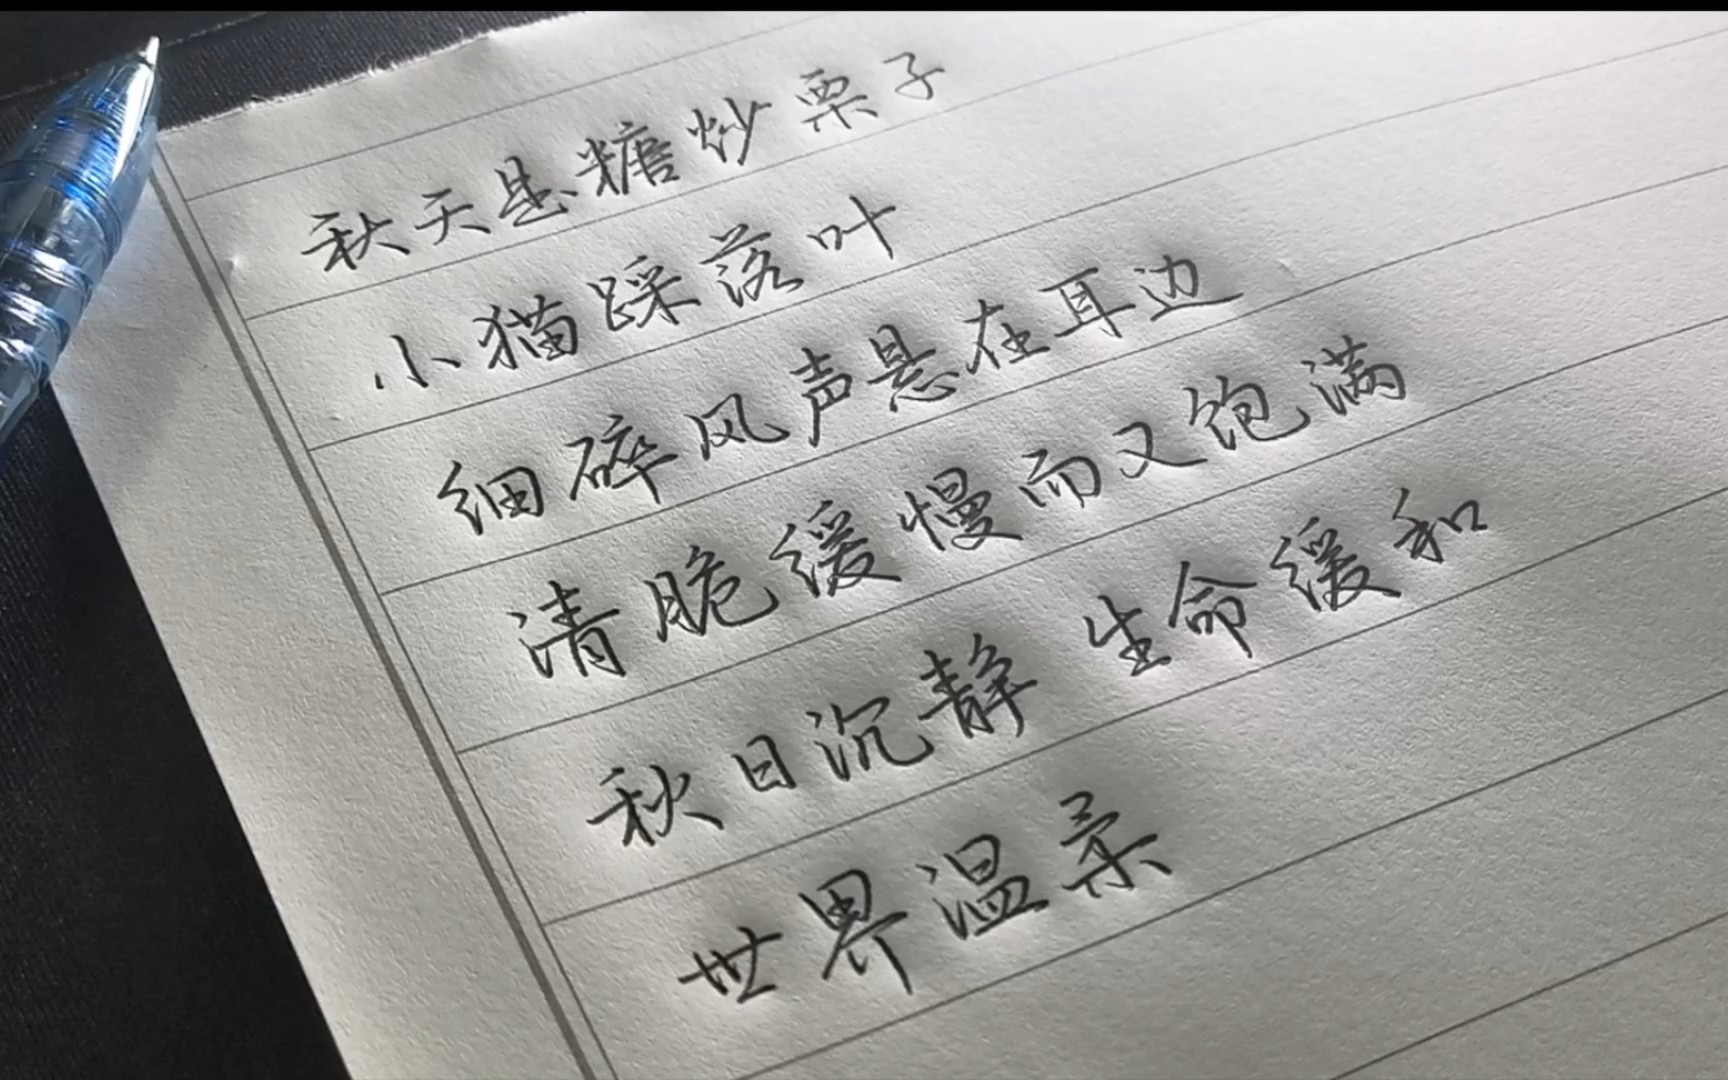 秋天是糖炒栗子
小猫踩落叶
细碎风声悬在耳边
清脆缓慢而又饱满
秋日沉静 生命缓和
世界温柔